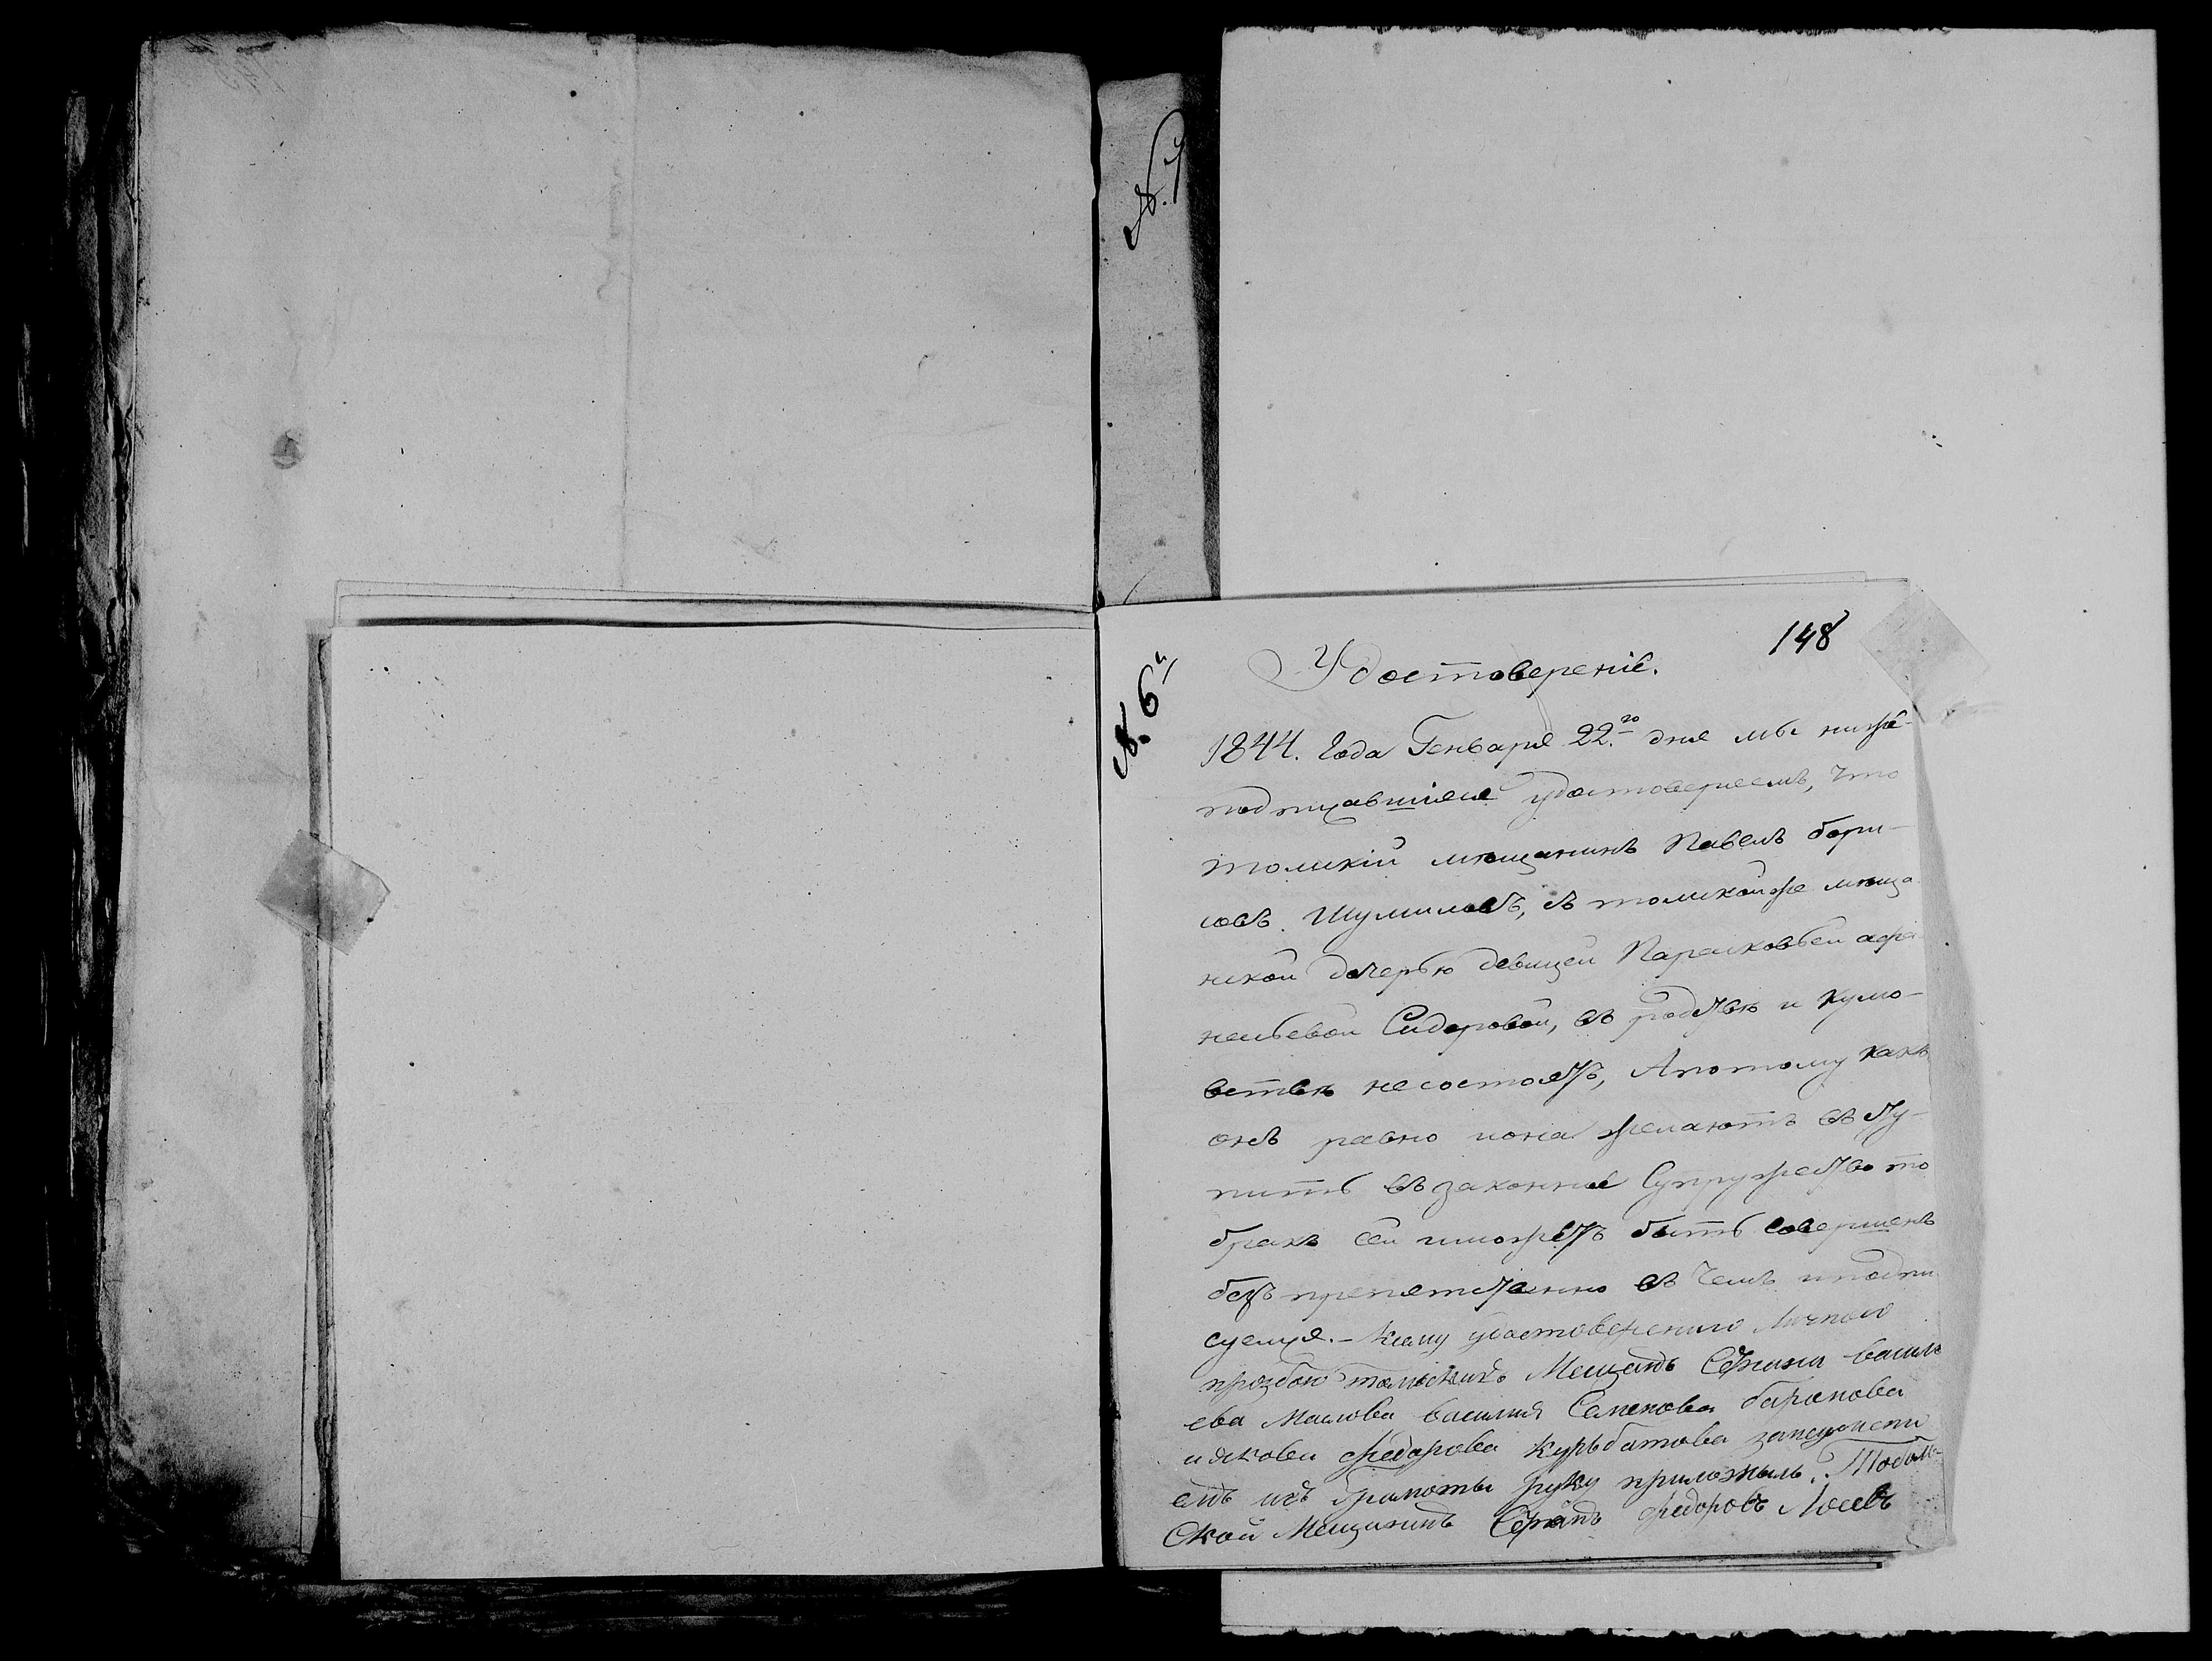 № 7
148
№ 6й
Удостоверенiе.
1844. Года Генваря 22.го дня мы ниже-
подписавшiяся удостоверяемъ, что
томскiй мѣщанинъ Павелъ бори-
совъ Шумиловъ, съ томской же мѣща
нской дочерью девицей Парасковьей афа
насьевой Сидоровой, въ родствѣ и кумо-
вствѣ несостоятъ, Апотому какъ
онъ равно иона желаютъ всту-
пить взаконное Супружество то
бракъ сей иможетъ быть совершенъ
безъ препятственно въ чемъ иподпи
суемся. – Ксему удостоверению Личною
прозбою томскихъ Мещанъ васил
ева Маслова василия Семенова баранова
иякова федорова Курбатова
ихъ Грамоты руку приложилъ. Тобол
Ской Мещанинъ федоровъ Лосевъ